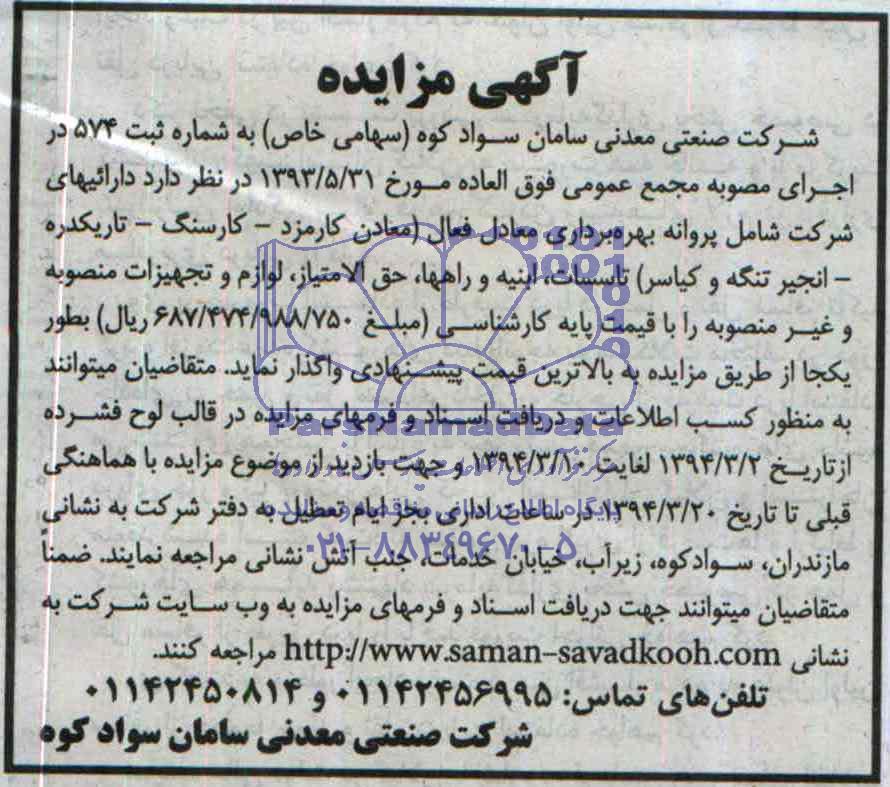 آگهی مزایده
شرکت صنعتی معدنی سامان سواد کوه (سهامی خاص) به شماره ثبت ۵۷۴ در
اجرای مصوبه مجمع عمومی فوق العاده مورخ ۱۳۹۳/۵/۳۱ در نظر دارد دارائیهای
شرکت شامل پروانه بهره‌برداری معادل فعال (معادن کارمزد – کارسنگ – تاریکدره
– انجیر تنگه و کیاسر) تاسیسات، ابنیه و راهها، حق الامتیاز، لوازم و تجهیزات منصوبه
و غیر منصوبه را با قیمت پایه کارشناسی (مبلغ ۶۸۷/۴۷۴/۹۸۸/۷۵۰ ریال) بطور
یکجا از طریق مزایده به بالاترین قیمت پیشنهادی واگذار نماید. متقاضیان میتوانند
به منظور کسب اطلاعات و دریافت اسناد و فرمهای مزایده در قالب لوح فشرده
ParsNamadData
از تاریخ ۱۳۹۴/۳/۲ لغایت ۱۳۹۴/۳/۱۰ و جهت بازدید از موضوع مزایده با هماهنگی
قبلی تا تاریخ ۱۳۹۴/۳/۲۰ در ساعات اداری بجز ایام تعطیل به دفتر شرکت به نشانی
۰۲۱-۸۸۳۴۹۶۷۰-۵
مازندران، سوادکوه، زیرآب، خیابان خدمات، جنب آتش نشانی مراجعه نمایند. ضمناً
متقاضیان میتوانند جهت دریافت اسناد و فرمهای مزایده به وب سایت شرکت به
نشانی http://www.saman-savadkooh.com مراجعه کنند.
تلفن‌های تماس: ۰۱۱۴۲۴۵۶۹۹۵ و ۰۱۱۴۲۴۵۰۸۱۴
شرکت صنعتی معدنی سامان سواد کوه